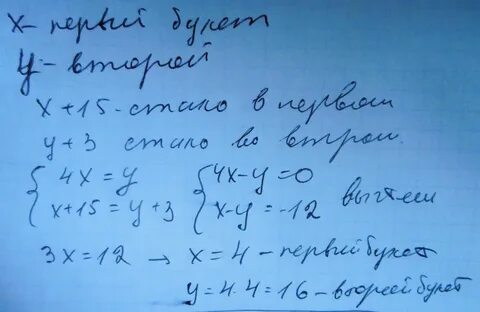 x - первый букет
y - второй
x + 15 - стало в первом
y + 3 стало во втором.
{ 4x = y { 4x - y = 0
x + 15 = y + 3 x - y = -12 вычтем
3x = 12 → x = 4 - первый букет
y = 4 · 4 = 16 - второй букет